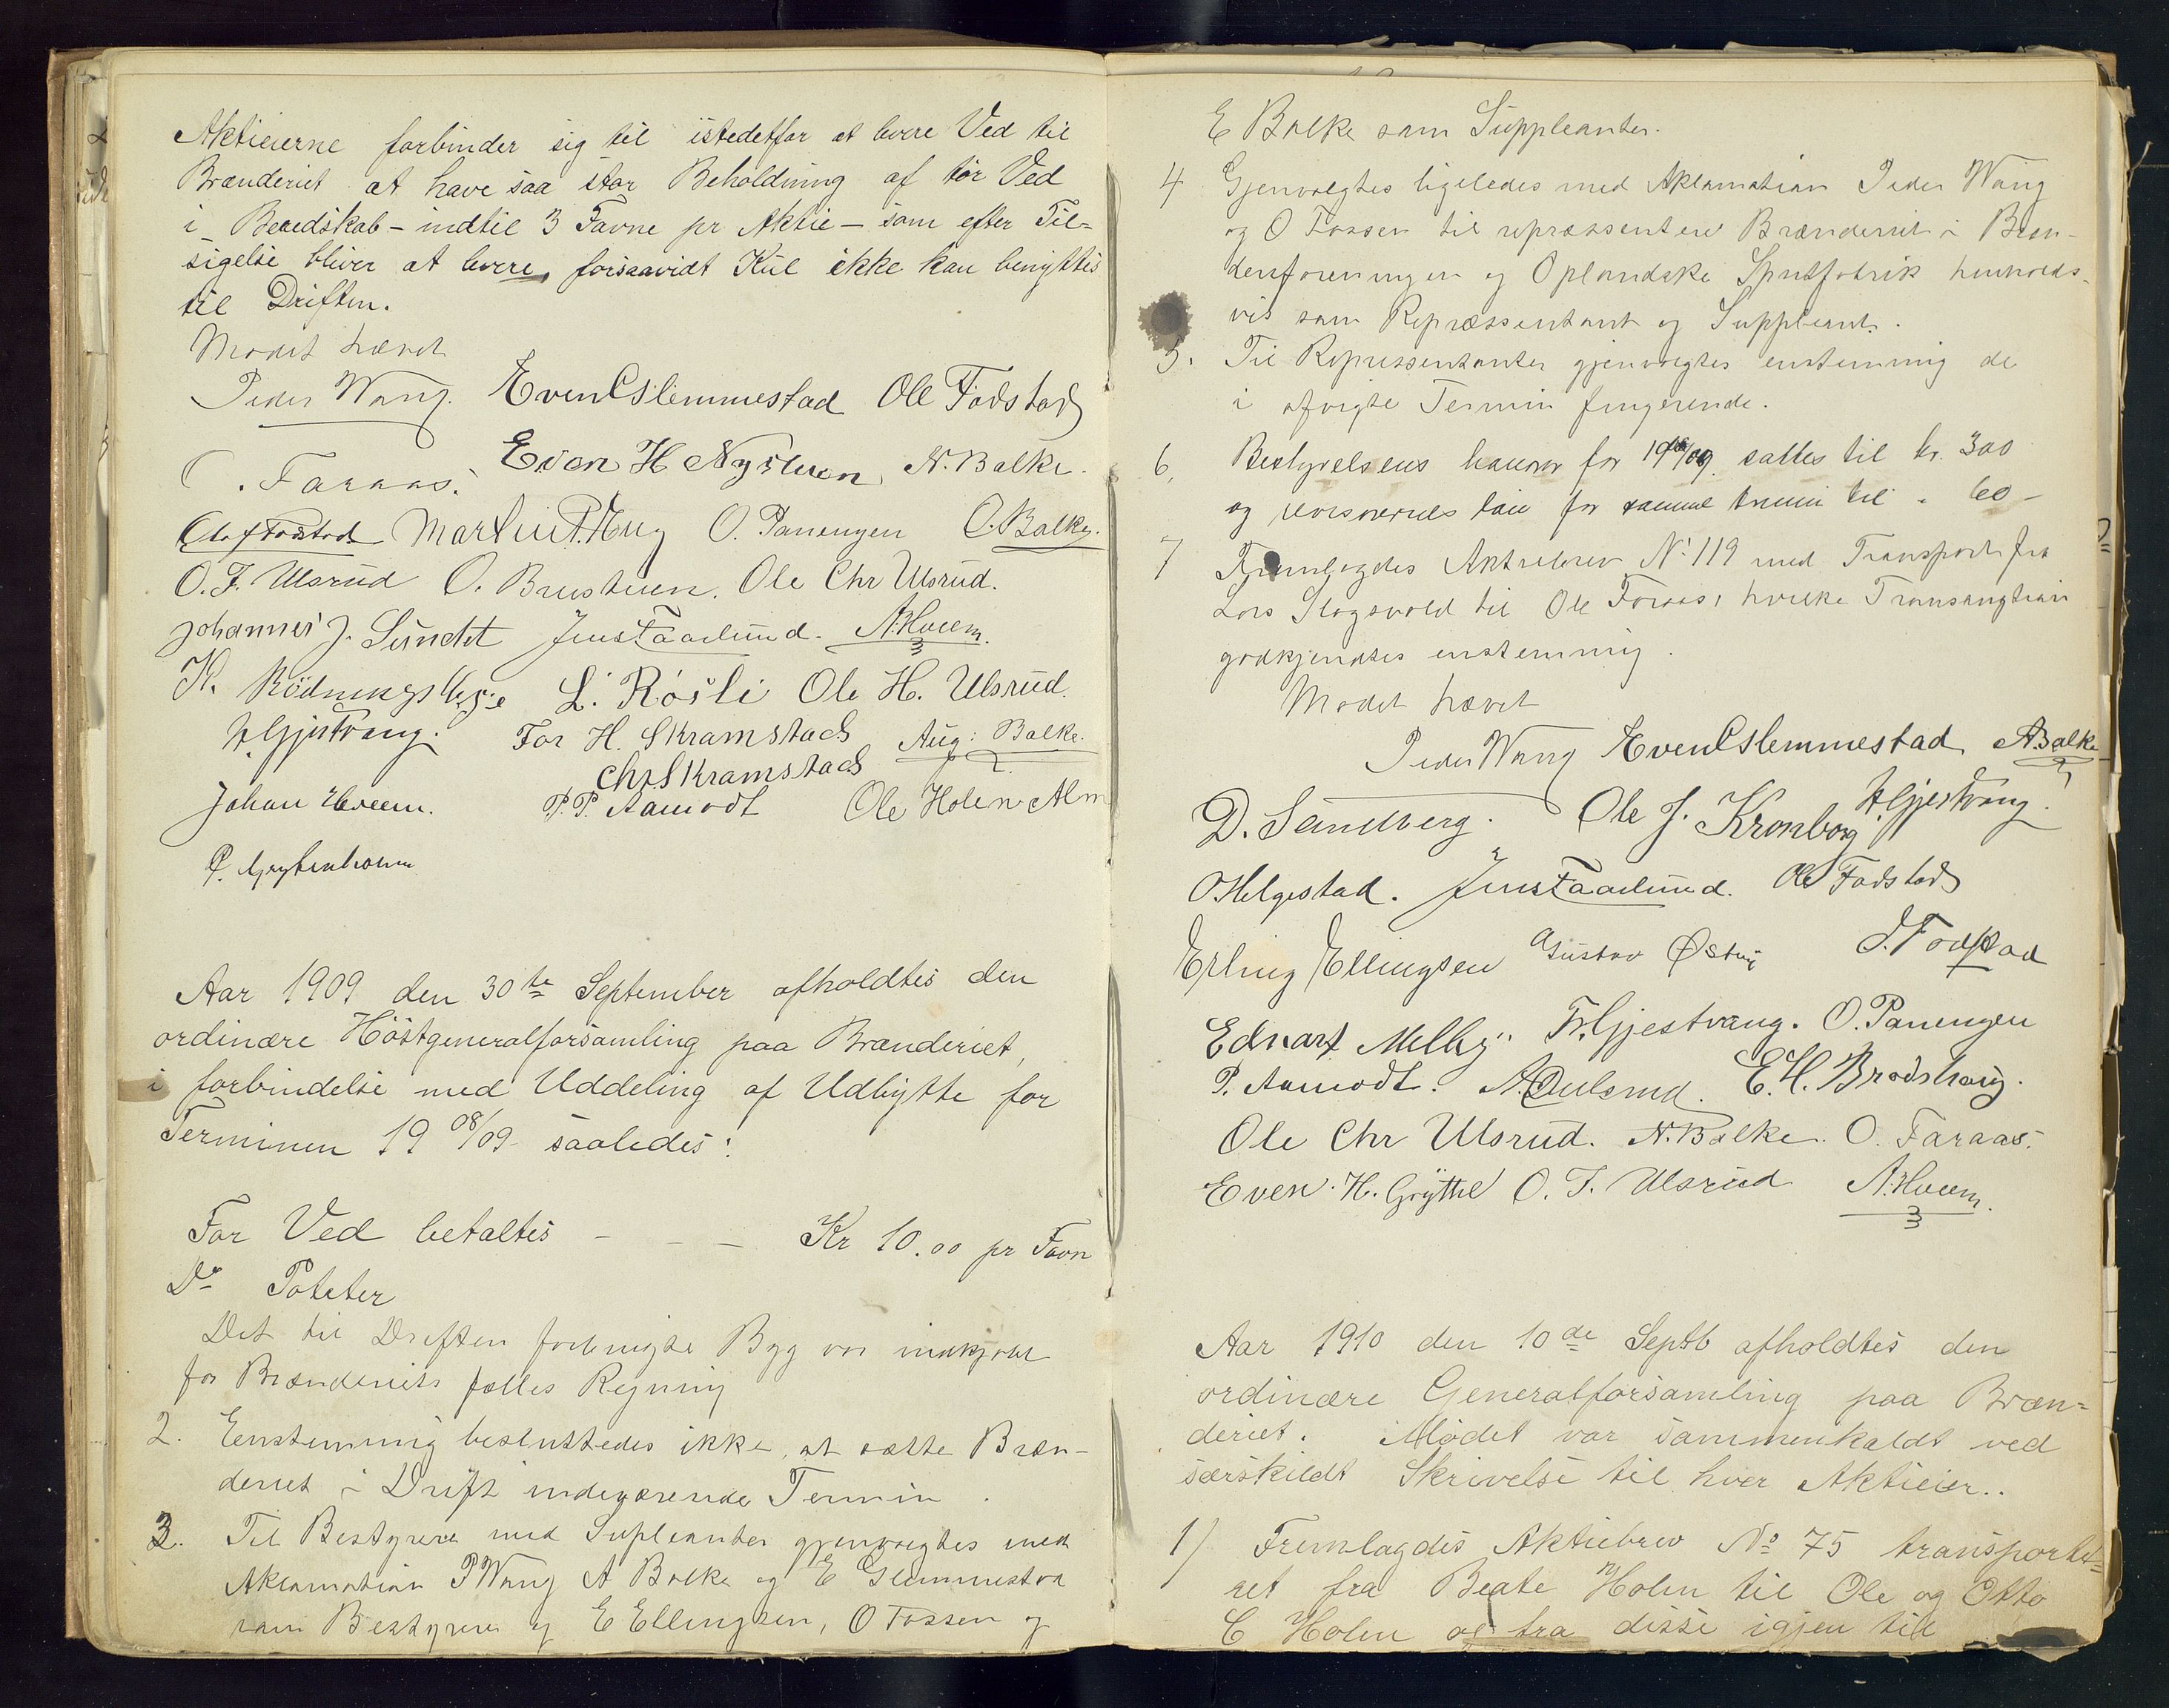 Aktieierne forbinder sig til istedetfor at levere Ved til
Brænderiet at have saa stor Beholdning af tør Ved
i Beredskab – indtil 3 Favne pr Aktie – som efter Til=
sigelse bliver at levere, forsaavidt Kul ikke kan benyttes
til Driften.
Mødet hævet
Peder Wang. Even E Slemmestad Ole Fodstad
O. Faraas. Even H Nysteuen, N. Balke.
Ole Fodstad Martin P. Hug O. Panengen O. Balke.
O. F. Ulsrud O. Brusteuen. Ole Chr Ulsrud.
Johannes J. Sundet Jens Taarlund. A. Hveem.
K. Rödningsberg L. Røsli Ole H. Ulsrud.
H. Gjestvang. For H. Skramstad Aug: Balke.
Chr Skramstad
Johan Hveem. P. P. Aamodt Ole Holen Alm
P. Gryteholm
Aar 1909 den 30te September afholdtes den
ordinære Höstgeneralforsamling paa Brænderiet,
i forbindelse med Uddeling af Udbytte for
Terminen 19 08/09 saaledes:
For Ved betaltes – – – Kr 10.00 pr Favn
Do Poteter
Det til Driften fornigde Byg var indkjøbt
for Brænderiets fælles Regning
2. Eenstemmig besluttedes ikke at sætte Bræn-
deriet i Drift indeværende Termin.
3. Til Bestyrere med Supleanter gjenvalgtes med
Aklamation P Wang A Balke og E Slemmestad
som Bestyrere og E Ellingsen, O Fossen og
E Balke som Suppleanter.
4 Gjenvalgtes ligeledes med Aklamation Peder Wang
og O Fossen til repræssentere Brænderiet i Bræn-
deriforeningen og Oplandske Spritfabrik henholds-
vis som Repræssentant og Suppleant.
5. Til Repressentanter gjenvalgtes enstemmig de
i afvigte Termin fungerende.
6. Bestyrelsens honorar for 1908/09 sattes til kr. 300
og revisorernes løn for samme termin til " 60 –
7 Fremlagdes Aktiebrev No 119 med Transport fra
Lars Slagsvold til Ole Faraas, hvilke Transangtion
godkjendtes enstemmig.
Mødet hævet
Peder Wang Even E Slemmestad A. Balke
D. Sandberg. Ole J. Kronborg H. Gjestvang.
O Helgestad. Jens Taarlund. Ole Fodstad
Erling Ellingsen Gustav Østvig J. Fodstad
Edvart Melby. Fr. Gjestvang. O. Panengen
P. Aamodt. A. Oulsrud. E. H. Brodshaug.
Ole Chr Ulsrud. N. Balke. O. Faraas.
Even H. Grytthe O. F. Ulsrud A. Hveem.
Aar 1910 den 10de Septb afholdtes den
ordinære Generalforsamling paa Bræn=
deriet. Mødet var sammenkaldt ved
særskildt Skrivelse til hver Aktieier..
1) Fremlagdes Aktiebrev No 75 transporte=
ret fra Beate Holen til Ole og Otto
C Holen og fra disse igjen til